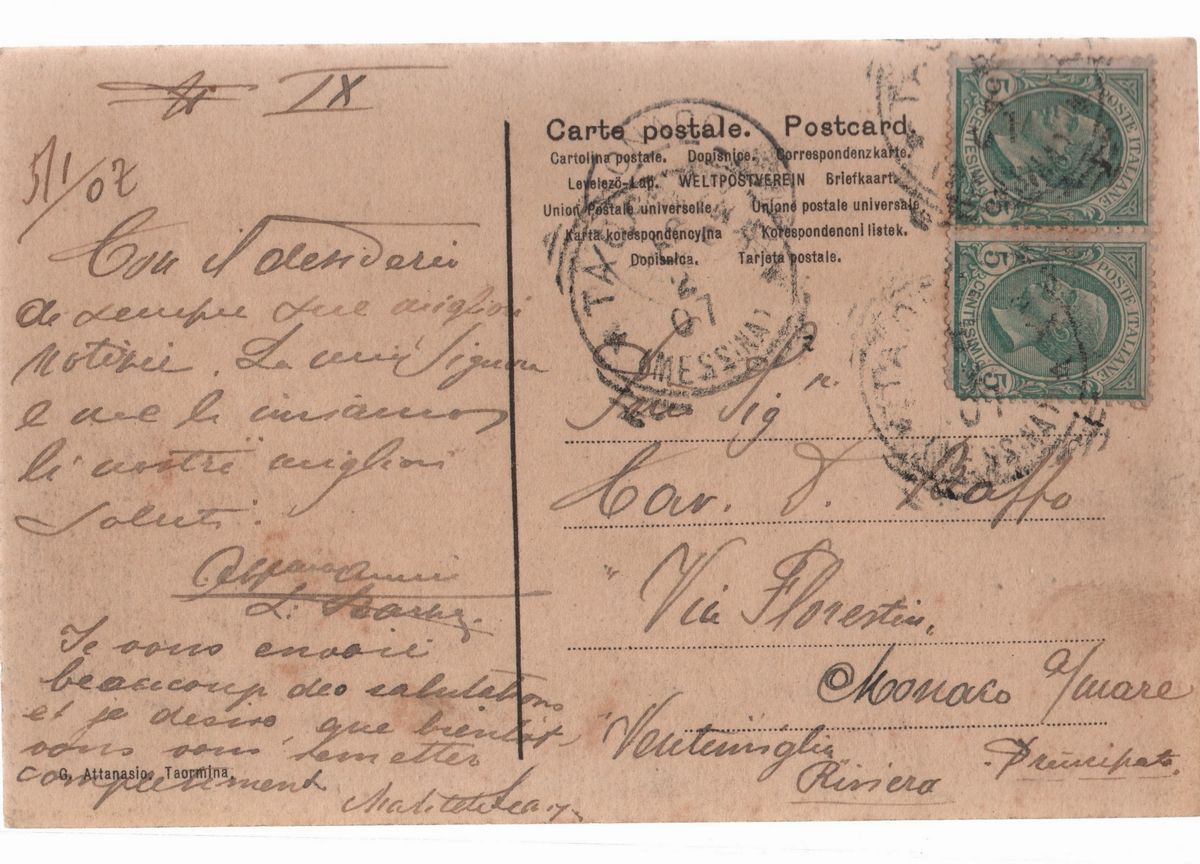 IX
5/1/07
Con il desiderio
di sempre sue migliori
notizie. La mia Signora
e me le inviamo
li nostri migliori
saluti.
Je vous envoie
beaucoup des salutations
et je desire, que bientôt
vous vous remettez
complement
G. Attanasio, Taormina.
Carte postale. Postcard.
Cartolina postale. Dopisnice. Correspondenzkarte.
Levelező-Lap. WELTPOSTVEREIN Briefkaart.
Union Postale universelle. Unione postale universale
Karta korespondencyjna Korespondencni listek.
Dopisnica. Tarjeta postale.
TAORMINA
5 07
(MESSINA)
POSTE ITALIANE
CENTESIMI 5
5
POSTE ITALIANE
CENTESIMI 5
5
TAOR
07
(MESSINA)
Sig
Cav. Raffo
Via Florestin,
Monaco s/mare
Ventimiglia
Principato
Riviera